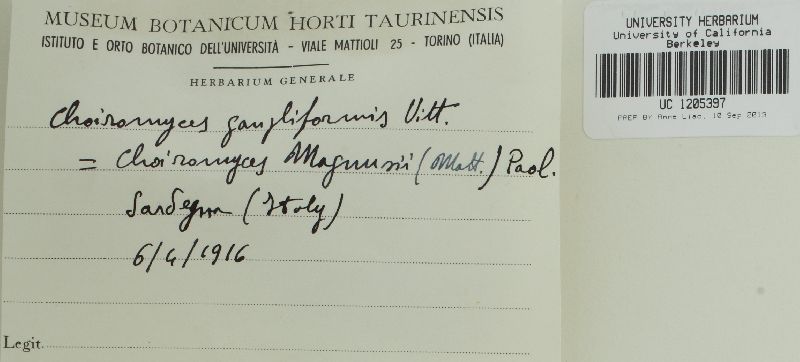 MUSEUM BOTANICUM HORTI TAURINENSIS
ISTITUTO E ORTO BOTANICO DELL'UNIVERSITÀ - VIALE MATTIOLI 25 - TORINO (ITALIA)
HERBARIUM GENERALE
Choiromyces gangliformis Vitt.
= Choiromyces Magnusii (Matt.) Paol.
Sardegna (Italy)
6/4/1916
Legit.
UNIVERSITY HERBARIUM
University of California
Berkeley
UC 1205397
PREP BY Anne Liao, 10 Sep 2013